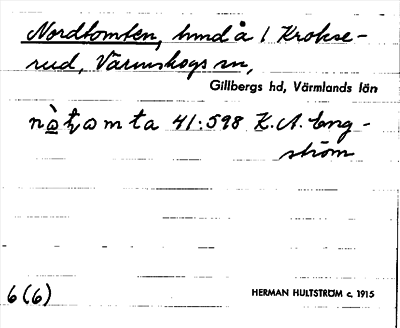 Nordtomten, hmd å 1 Krokse-
rud, Värmskogs sn,
Gillbergs hd, Värmlands län
41:598 K.A. Eng-
ström
6(6)
HERMAN HULTSTRÖM c. 1915